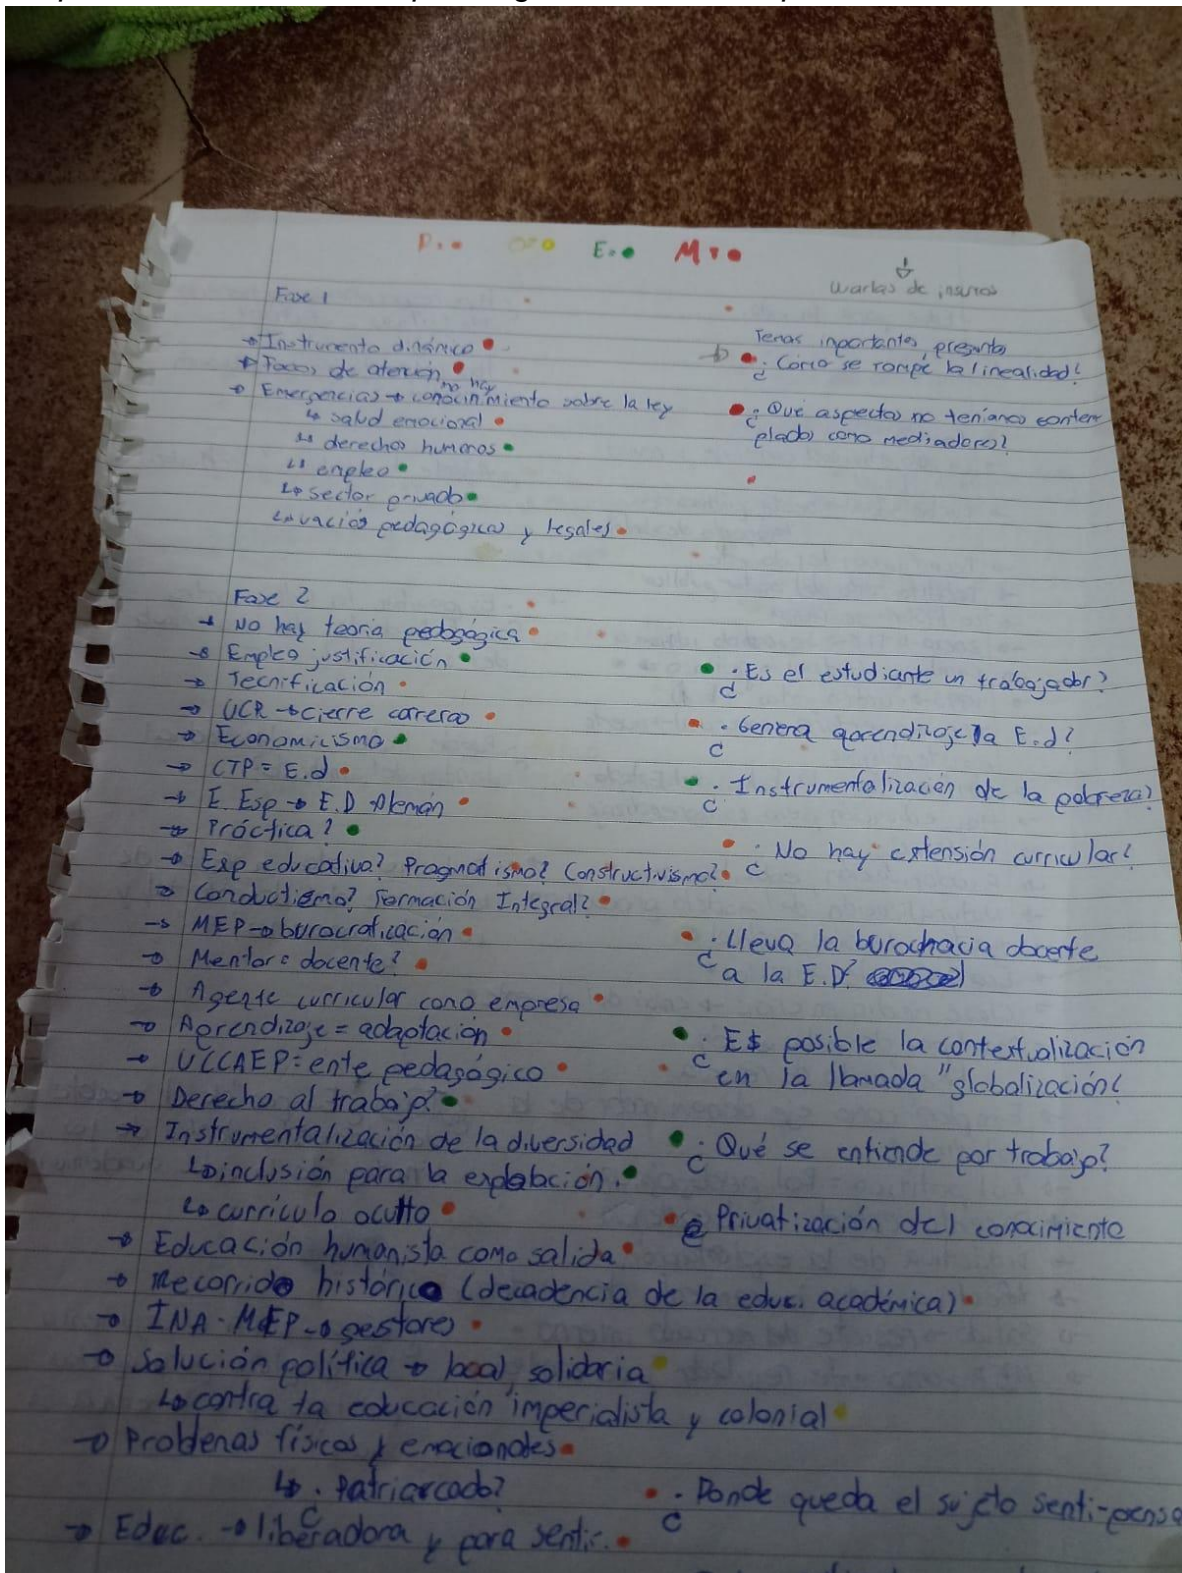 P: O: E: M:
Fase 1
→ Instrumento dinámico
→ Focos de atención
→ Emergencias → no hay conocimiento sobre la ley
↳ salud emocional
↳ derechos humanos
↳ empleo
↳ sector privado
↳ vacíos pedagógicos y legales
Temas importantes, pregunta
¿Cómo se rompe la linealidad?
¿Qué aspectos no teníamos contem
plados como mediadores?
Fase 2
→ No hay teoría pedagógica
→ Empleo justificación
→ Tecnificación
→ UCR → cierre carreras
→ Economicismo
→ CTP = E.d
→ E. Esp → E.D Alemán
→ Práctica?
→ Exp educativa? Pragmatismo? Constructivismo?
→ Conductismo? Formación Integral?
→ MEP → burocratización
→ Mentor = docente?
→ Agente curricular como empresa
→ Aprendizaje = adaptación
→ UCCAEP = ente pedagógico
→ Derecho al trabajo?
→ Instrumentalización de la diversidad
↳ inclusión para la explotación.
↳ currículo oculto
→ Educación humanista como salida
→ Recorrido histórico (decadencia de la educ. académica)
→ INA - MEP → gestores
→ Solución política → local, solidaria
↳ contra la educación imperialista y colonial
→ Problemas físicos y emocionales
↳ ¿Patriarcado?
→ Educ. → liberadora y para sentir.
¿Es el estudiante un trabajador?
¿Genera aprendizaje la E.d?
¿Instrumentalización de la pobreza?
¿No hay extensión curricular?
¿Lleva la burochacia docente
a la E.D?
¿E$ posible la contextualización
en la llamada "globalización?
¿Qué se entiende por trabajo?
Privatización del conocimiento
¿Donde queda el sujeto senti-pensa